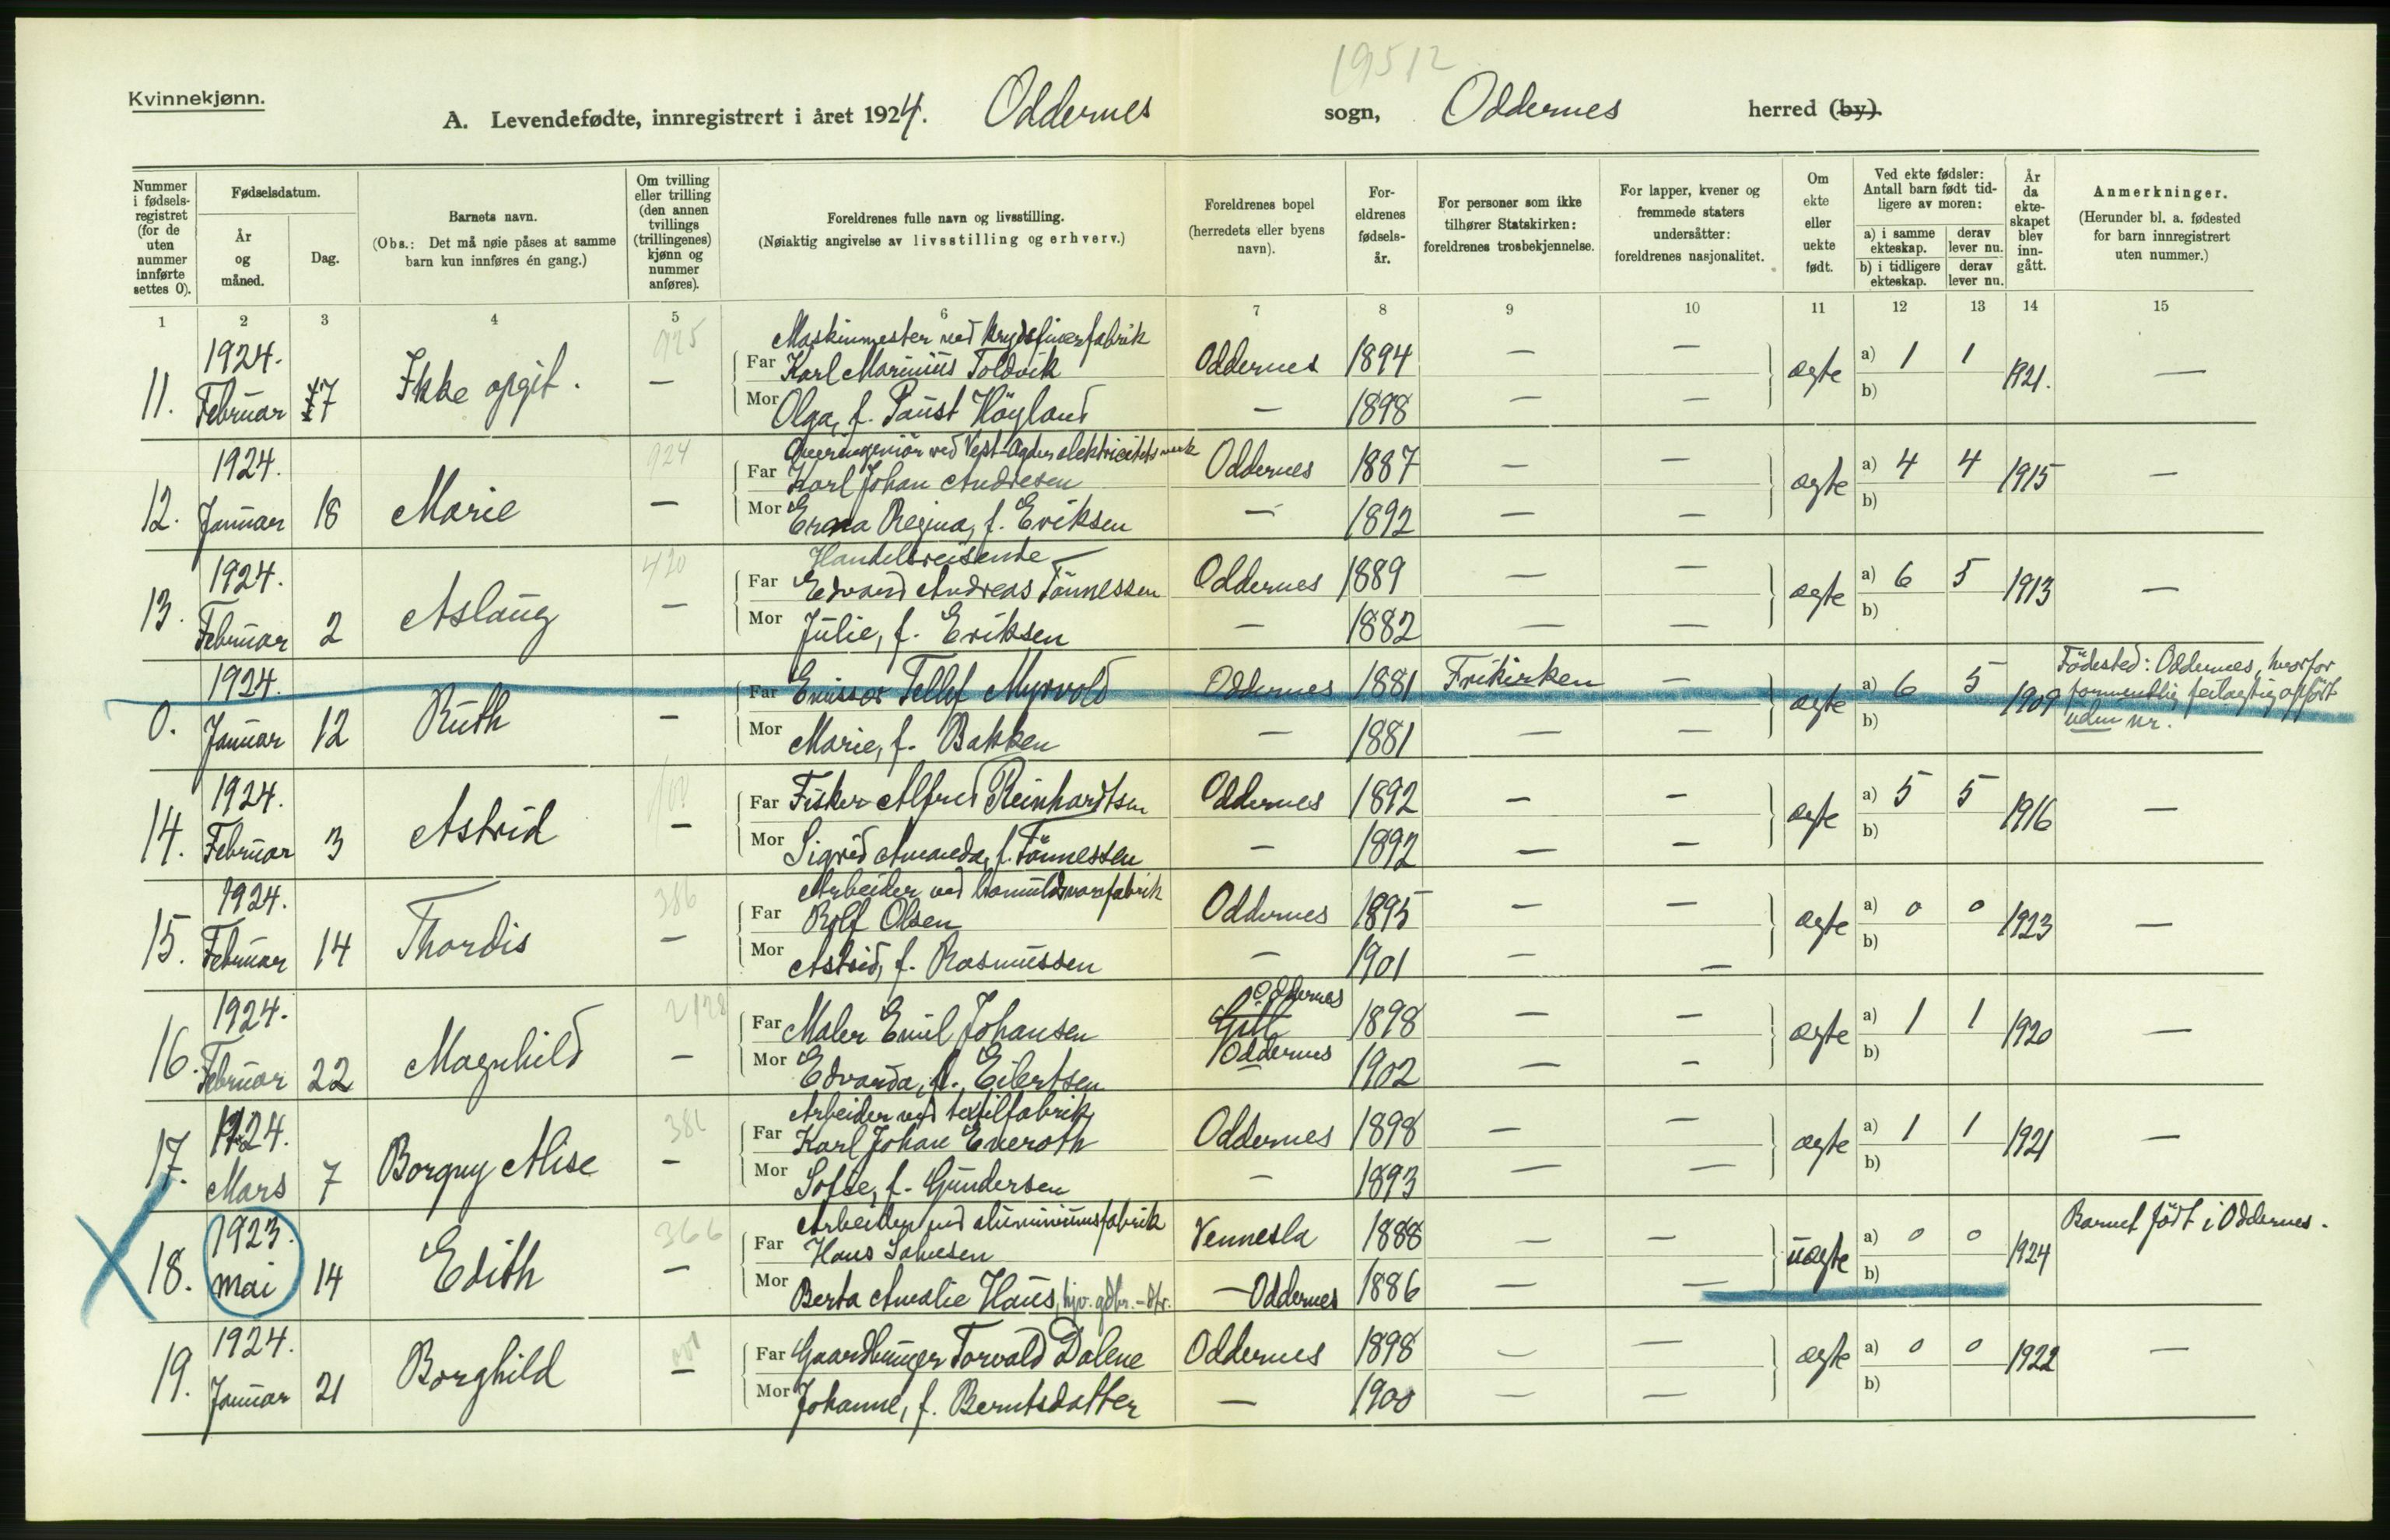 19512
Kvinnekjønn.
A. Levendefødte, innregistrert i året 1924. Oddernes sogn, Oddernes herred (by).
Nummer i fødselsregistret (for de uten nummer innførte settes 0).
Fødselsdatum.
År og måned.
Dag.
Barnets navn.
(Obs.: Det må nøie påses at samme barn kun innføres én gang.)
Om tvilling eller trilling (den annen tvillings (trillingenes) kjønn og nummer anføres).
Foreldrenes fulle navn og livsstilling.
(Nøiaktig angivelse av livsstilling og erhverv.)
Foreldrenes bopel (herredets eller byens navn).
Foreldrenes fødselsår.
For personer som ikke tilhører Statskirken: foreldrenes trosbekjennelse.
For lapper, kvener og fremmede staters undersåtter: foreldrenes nasjonalitet.
Om ekte eller uekte født.
Ved ekte fødsler: Antall barn født tidligere av moren:
a) i samme ekteskap. derav lever nu.
b) i tidligere ekteskap. derav lever nu.
År da ekteskapet blev inngått.
Anmerkninger.
(Herunder bl. a. fødested for barn innregistrert uten nummer.)
1 2 3 4 5 6 7 8 9 10 11 12 13 14 15
925 Maskinmester ved krydsfinerfabrik
11. 1924. Februar 17 Ikke opgit. — Far Karl Marinius Toldvik Oddernes 1894 — — ægte a) 1 1 1921. —
Mor Olga, f. Paust Höyland — 1898 — — b)
924 Overingeniör ved Vest-Agder elektricitetsverk
12. 1924. Januar 18 Marie — Far Karl Johan Andresen Oddernes 1887 — — ægte a) 4 4 1915 —
Mor Erna Regina, f. Eriksen — 1892 — — b)
420 Handelsreisende
13. 1924. Februar 2 Aslaug — Far Edvard Andreas Tönnessen Oddernes 1889 — — ægte a) 6 5 1913 —
Mor Julie, f. Eriksen — 1882 — — b)
0. 1924. Januar 12 Ruth — Far Emissær Tellef Myrvold Oddernes 1881 Frikirken — ægte a) 6 5 1909 Födested: Oddernes, hvorfor formentlig feilagtig opfört uden nr.
Mor Marie, f. Bakken — 1881 — — b)
14. 1924. Februar 3 Astrid — Far Fisker Alfred Reinhardtsen Oddernes 1892 — — ægte a) 5 5 1916 —
Mor Sigrid Amanda, f. Tönnessen — 1892 — — b)
386 Arbeider ved bomuldsvarefabrik
15. 1924. Februar 14 Thordis — Far Rolf Olsen Oddernes 1895 — — ægte a) 0 0 1923 —
Mor Astrid, f. Rasmussen — 1901 — — b)
Oddernes
16. 1924. Februar 22 Magnhild 2128 — Far Maler Emil Johansen 1898 — — ægte a) 1 1 1920 —
Mor Edvarda, f. Eilertsen Oddernes 1902 — — b)
Arbeider ved textilfabrik
17. 1924. Mars 7 Borgny Alise — Far Karl Johan Eneroth Oddernes 1898 — — ægte a) 1 1 1921 —
Mor Sofie, f. Gundersen — 1893 — — b)
366 Arbeider ved aluminiumsfabrik
18. 1923. mai 14 Edith — Far Hans Salvesen Vennesla 1888 — — uægte a) 0 0 1924 Barnet födt i Oddernes.
Mor Berta Amalie Haus, hjv. gdbr.-dtr. — Oddernes 1886 — — b)
19. 1924. Januar 21 Borghild — Far Gaardbruger Torvald Dalene Oddernes 1898 — — ægte a) 0 0 1922 —
Mor Johanne, f. Berntsdatter — 1900 — — b)